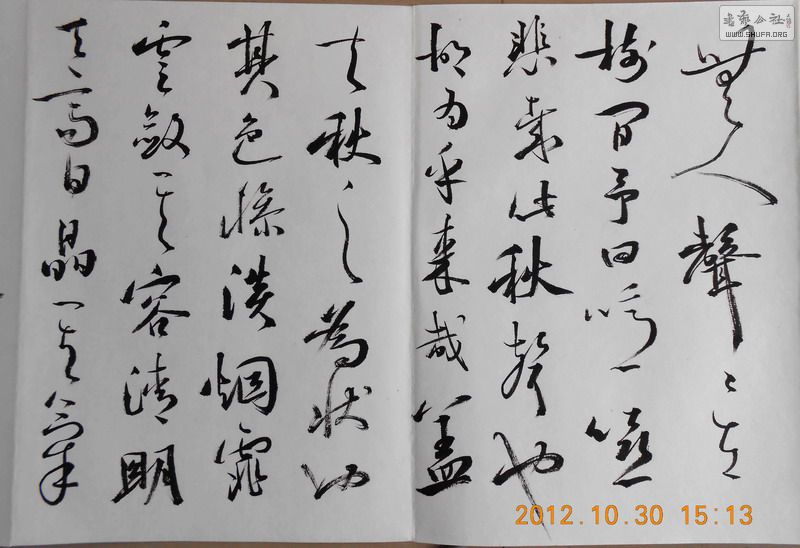 無人聲〻在
樹間予曰
悲哉此秋聲也
胡为乎來哉蓋
夫秋之為狀也
其色慘淡烟霏
雲斂其容清明
天高日晶其氣
書法公社
WWW.SHUFA.ORG
2012.10.30 15:13